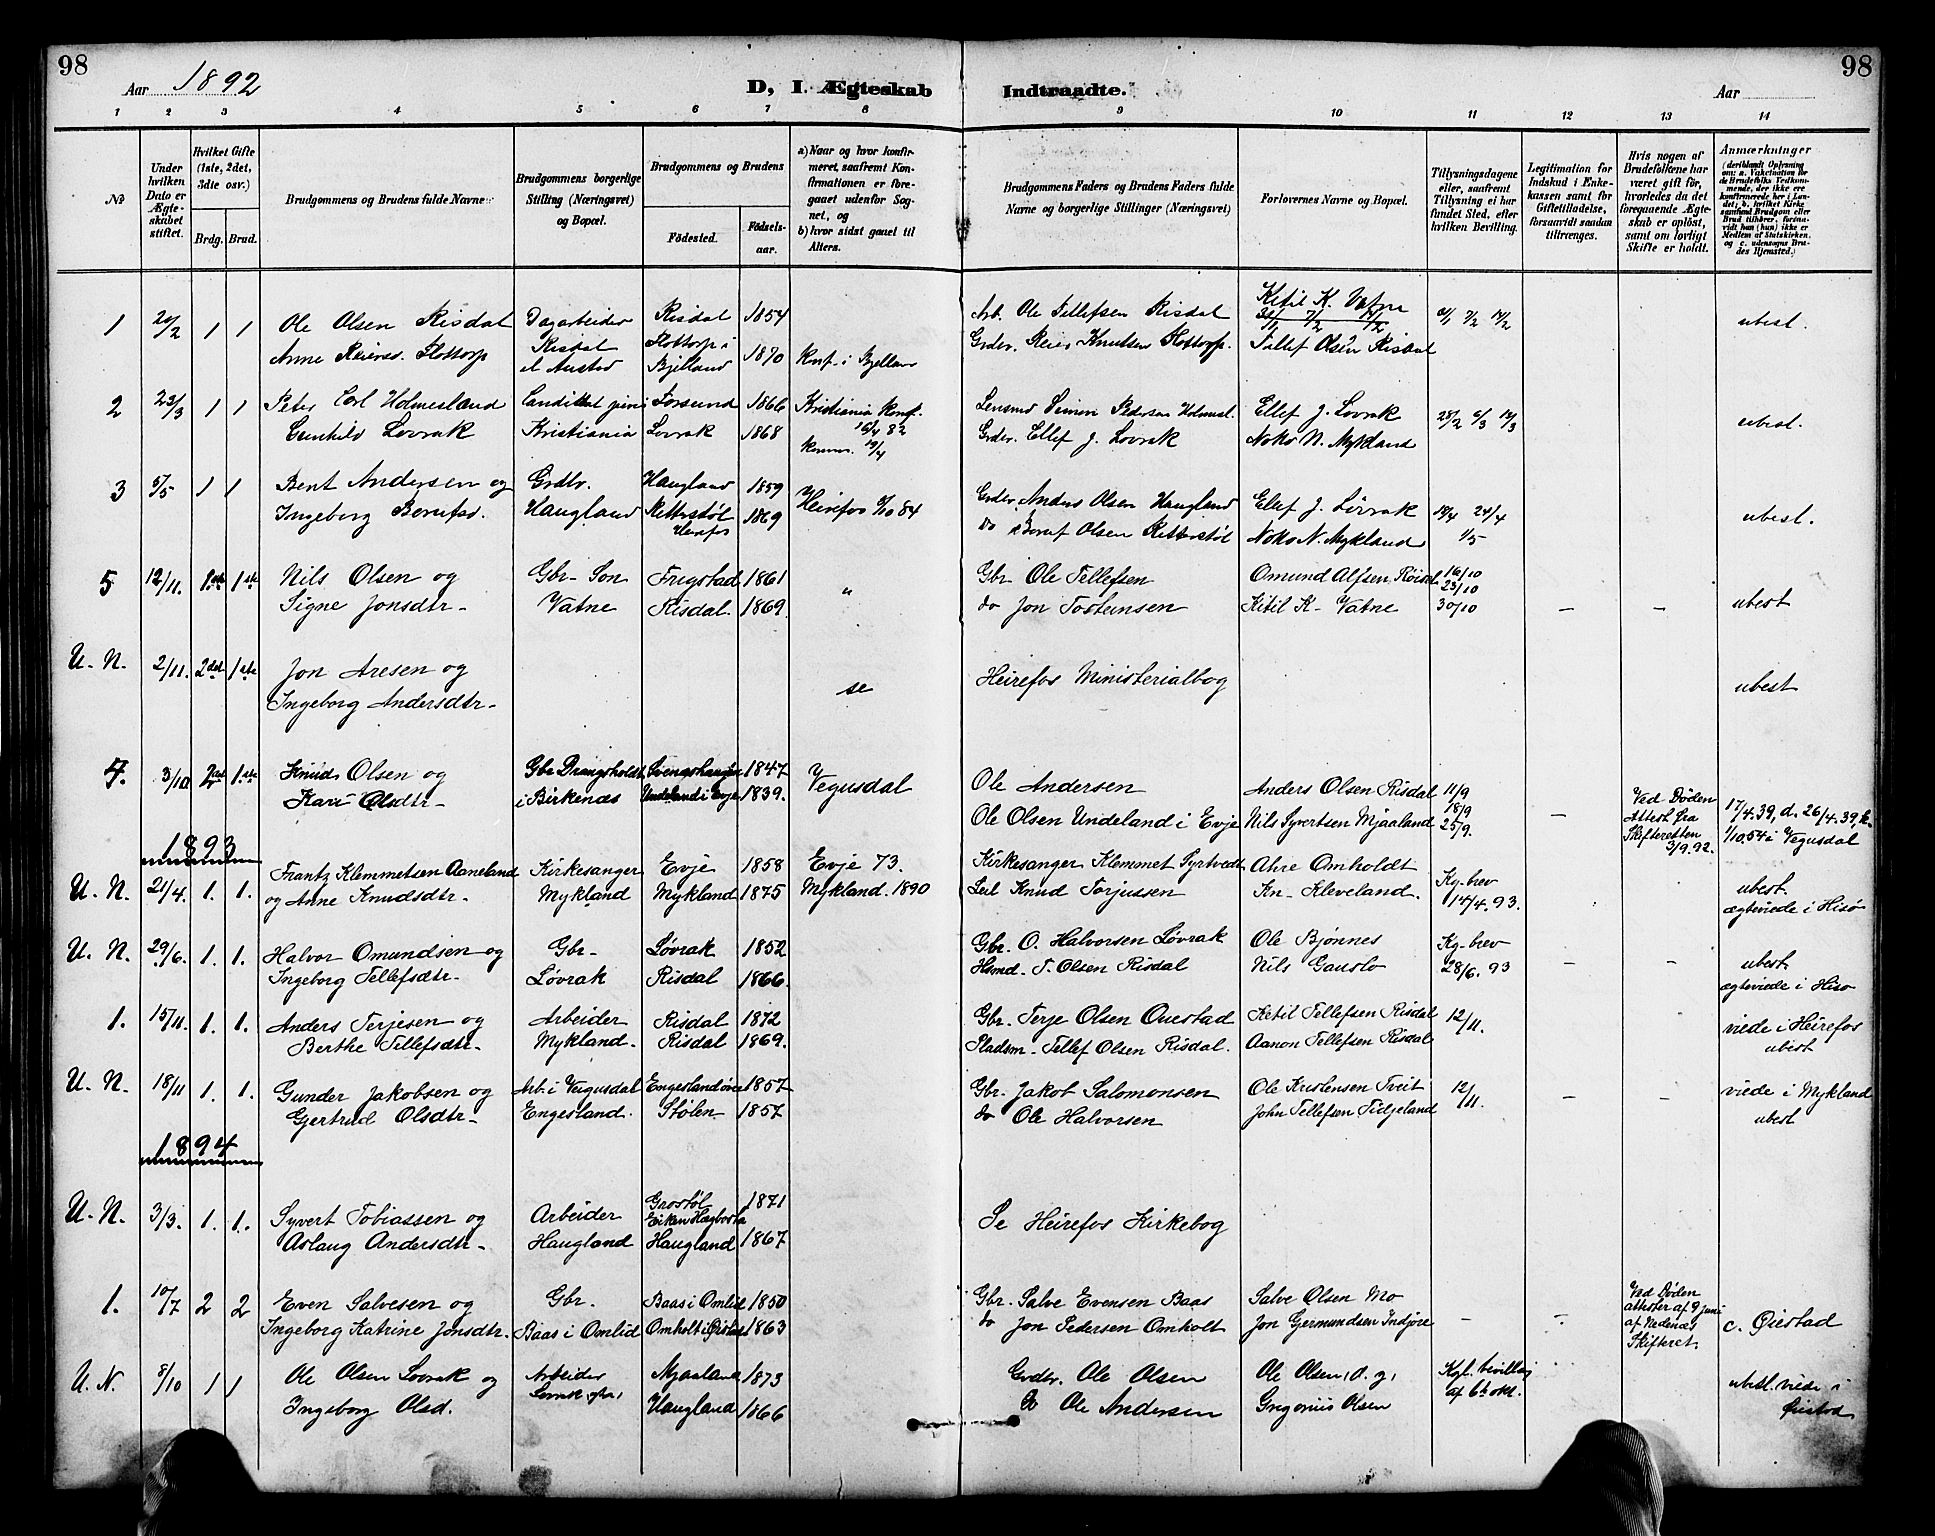 98
Aar 1892
D, I. Ægteskab
Indtraadte.
Aar
98
1 2 3 4 5 6 7 8 9 10 11 12 13 14
No
Under hvilken Dato er Ægteskabet stiftet.
Hvilket Gifte (1ste, 2det, 3die osv.)
Brdg. Brud.
Brudgommens og Brudens fulde Navne.
Brudgommens borgerlige Stilling (Næringsvei) og Bopæl.
Brudgommens og Brudens
Fødested.
Fødselsaar.
a) Naar og hvor konfirmeret, saafremt Konfirmationen er foregaaet udenfor Sognet, og
b) hvor sidst gaaet til Alters.
Brudgommens Faders og Brudens Faders fulde Navne og borgerlige Stillinger (Næringsvei)
Forlovernes Navne og Bopæl.
Tillysningsdagene eller, saafremt Tillysning ei har fundet Sted, efter hvilken Bevilling.
Legitimation for Indskud i Enkekassen samt for Giftetilladelse, forsaavidt saadan tiltrænges.
Hvis nogen af Brudefolkene har været gift før, hvorledes da det foregaaende Ægteskab er opløst, samt om lovligt Skifte er holdt.
Anmærkninger
(deriblandt Oplysning om: a. Vakcination for de Brudefolks Vedkommende, der ikke ere konfirmerede her i Landet; b. hvilket Kirkesamfund Brudgom eller Brud tilhører, forsaavidt han (hun) ikke er Medlem af Statskirken, og c. udensogns Brudes Hjemsted.)
1 20/2 1 1 Ole Olsen Risdal Dagarbeider Risdal 1854 Arb. Ole Tellefsen Risdal Ketil K. Vatne 31/1 7/2 14/2 ubest.
Anne Reiersd. Flottorp Risdal Flottorp i Bjelland 1870 Konf. i Bjelland Grdbr. Reier Knutsen Flottorp. Tellef Olsen Risdal
2 23/3 1 1 Peter Carl Holmesland Kristiania Farsund 1866 Kristiania konf. 16/4 82 Lensmd Simon Pedersen Holmsl. Ellef J. Lovrak 28/2 6/3 13/3 ubest.
Gunhild Lovrak Lovrak 1868 Grdbr. Ellef J. Lovrak Noks N. Mykland
3 5/5 1 1 Bent Andersen og Grdbr. Haugland 1859 Heirefos 84 Grdbr. Anders Olsen Haugland Ellef J. Lövrak 18/4 24/4 ubest.
Ingeborg Berufsd. Haugland Retterstøl Herefos 1869 do Beruf Olsen Retterstøl Noks N. Mykland 1/5
5 12/11. 1ste 1ste Nils Olsen og Gbr-Søn Frigstad 1861 " Gbr Ole Tellefsen Omund Alfsen Røisl. 16/10 23/10
Signe Jonsdtr- Vatne Risdal. 1869. do Jon Tosteinsen Kitil K- Vatne 30/10 – – ubest
U. N. 2/11. 2det 1ste Jon Aresen og se Heirefos Ministerialbog ubest
Ingeborg Andersdtr-
7. 3/10 2det 1ste Knud Olsen og Gbr Drangsholdt Svengshaugen 1847 Vegusdal Ole Andersen Anders Olsen Risdal 11/9 18/9 Ved Døden 17/4.39, d. 26/4.39, k.
Kari Olsdtr- i Birkenæs Undeland i Evje 1839. Ole Olsen Undeland i Evje Nils Syvertsen Mjaaland 25/9. – Attest fra Skifteretten 3/9.92. 1/10.54 i Vegusdal
1893
U. N. 21/4. 1. 1. Frantz Klemmetsen Aaneland Kirkesanger Evje 1858 Evje 73. Kirkesanger Klemmet Syrtvedt Ahre Omholdt Kg-brev ubest.
og Anne Knudsdtr- Mykland Mykland 1875 Mykland. 1890 Leil Knud Torjussen Kn- Kleveland. 14/4.93. ægteviede i Hisø
U. N. 29/6. 1. 1. Halvor Omundsen og Gbr- Løvrak 1852 Gbr. O. Halvorsen Løvrak Ole Bjønnes Kg-brev ubest
Ingeborg Tellefsdtr- Løvrak Risdal 1866. Hsmd- T. Olsen Risdal Nils Gauslo 28/6. 93 – – ægteviede i Hisø
1. 15/11. 1. 1. Anders Terjesen og Arbeider Risdal 1872 Gbr. Terje Olsen Ouestad Ketil Tellefsen Risdal 12/11. viede i Heirefos
Berthe Tellefsdtr- Mykland- Risdal 1869. Pladsm- Tellef Olsen Risdal. Aanon Tellefsen Risdal ubest
U. N. 18/11 1. 1. Gunder Jakobsen og Arb. i Vegusdal Engeslandøvre 1857 Gbr. Jakob Salomonsen Ole Kristensen Tveit 12/11. – – viede i Mykland
Gjertrud Olsdtr- Engesland. Stølen 1857 do Ole Halvorsen John Tellefsen Tidjeland ubest
1894
U. N. 3/3. 1. 1. Syvert Tobiassen og Arbeider Grostøl Eiken Hægbosta 1871 Se Heirefos Kirkebog
Aslaug Andersdtr- Haugland Haugland 1867
1. 10/7 2 2 Even Salvesen og Gbr. Baas i Omlid 1850 Gbr. Salve Evensen Baas Salve Olsen Mo Ved Døden attester af 9 juni
Ingeborg Katrine Jonsdtr. Baas i Omlid Omholt i Øistad 1863 do Jon Pedersen Omholt Jon Germundsen Indjore – – af Nedenæs Skifteret. c. Øiestad
U. N. 8/10 1 1 Ole Olsen Lovrak og Arbeider Mjaaland 1873 Grdbr. Ole Olsen Ole Olsen, d. y, Kgl. bevilling ubest. viede i
Ingeborg Olsd. Haugland 1866 Do Ole Andersen Gregorius Olsen af 6te okt. Øiestad